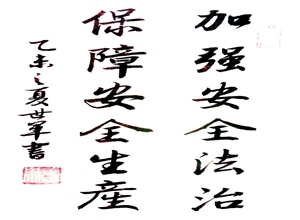 加强安全法治
保障安全生産
乙未之夏世军書